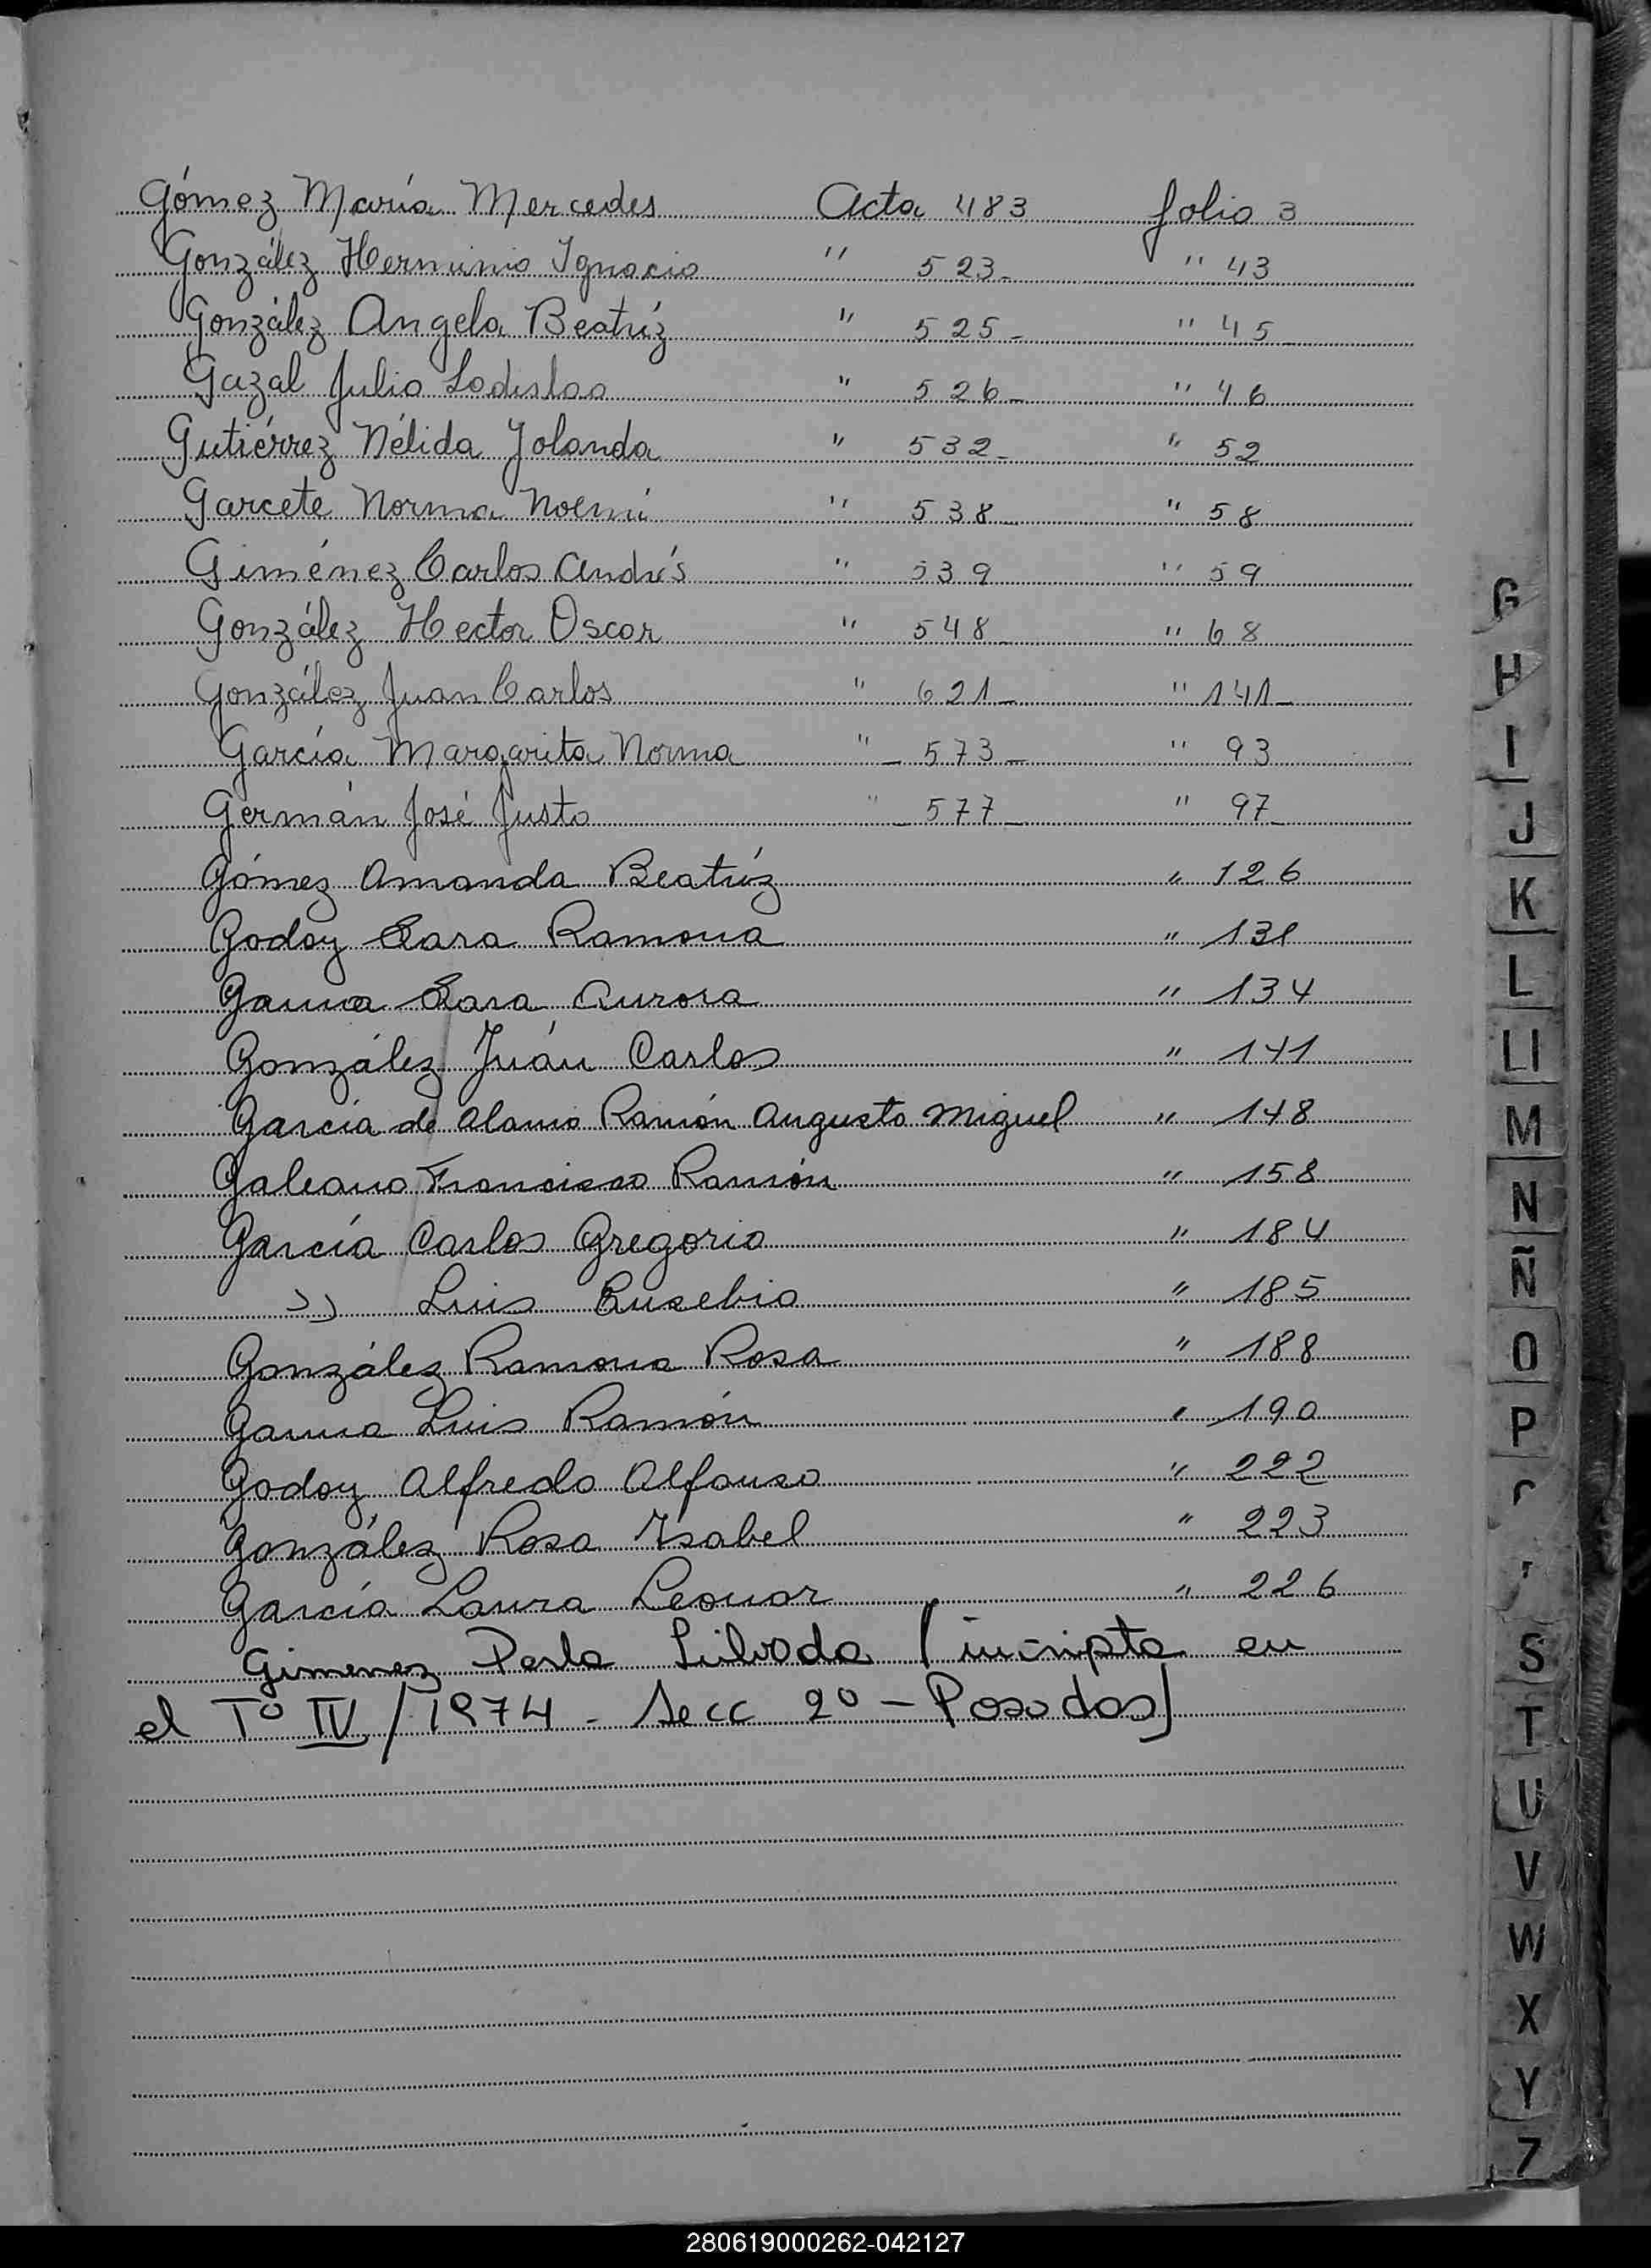 Gómez María Mercedes Acta 483 folio 3
González Herminio Ignacio " 523- " 43
González Angela Beatríz " 525- " 45-
Gazal Julio Ladislao " 526- " 46
Gutiérrez Nélida Yolanda " 532- " 52
Garcete Norma Noemi " 538- " 58
Giménez Carlos Andrés " 539 " 59
González Hector Oscar " 548- " 68
González Juan Carlos " 621- " 141-
García Margarita Norma " - 573- " 93
Germán José Justo " - 577- " 97-
Gómez Amanda Beatríz " 126
Godoy Sara Ramona " 131
Gauna Sara Aurora " 134
González Juán Carlos " 141
García de Alamo Ramón Augusto Miguel " 148
Galeano Francisco Ramón " 158
García Carlos Gregorio " 184
" Luis Eusebio " 185
González Ramona Rosa " 188
Gauna Luis Ramón " 190
Godoy Alfredo Alfonso " 222
González Rosa Isabel " 223
García Laura Leonor " 226
Gimenez Perla (incripta en
el T° IV / 1974 - Secc 2° - Posadas)
G
H
I
J
K
L
Ll
M
N
Ñ
O
P
S
T
U
V
W
X
Y
Z
280619000262-042127